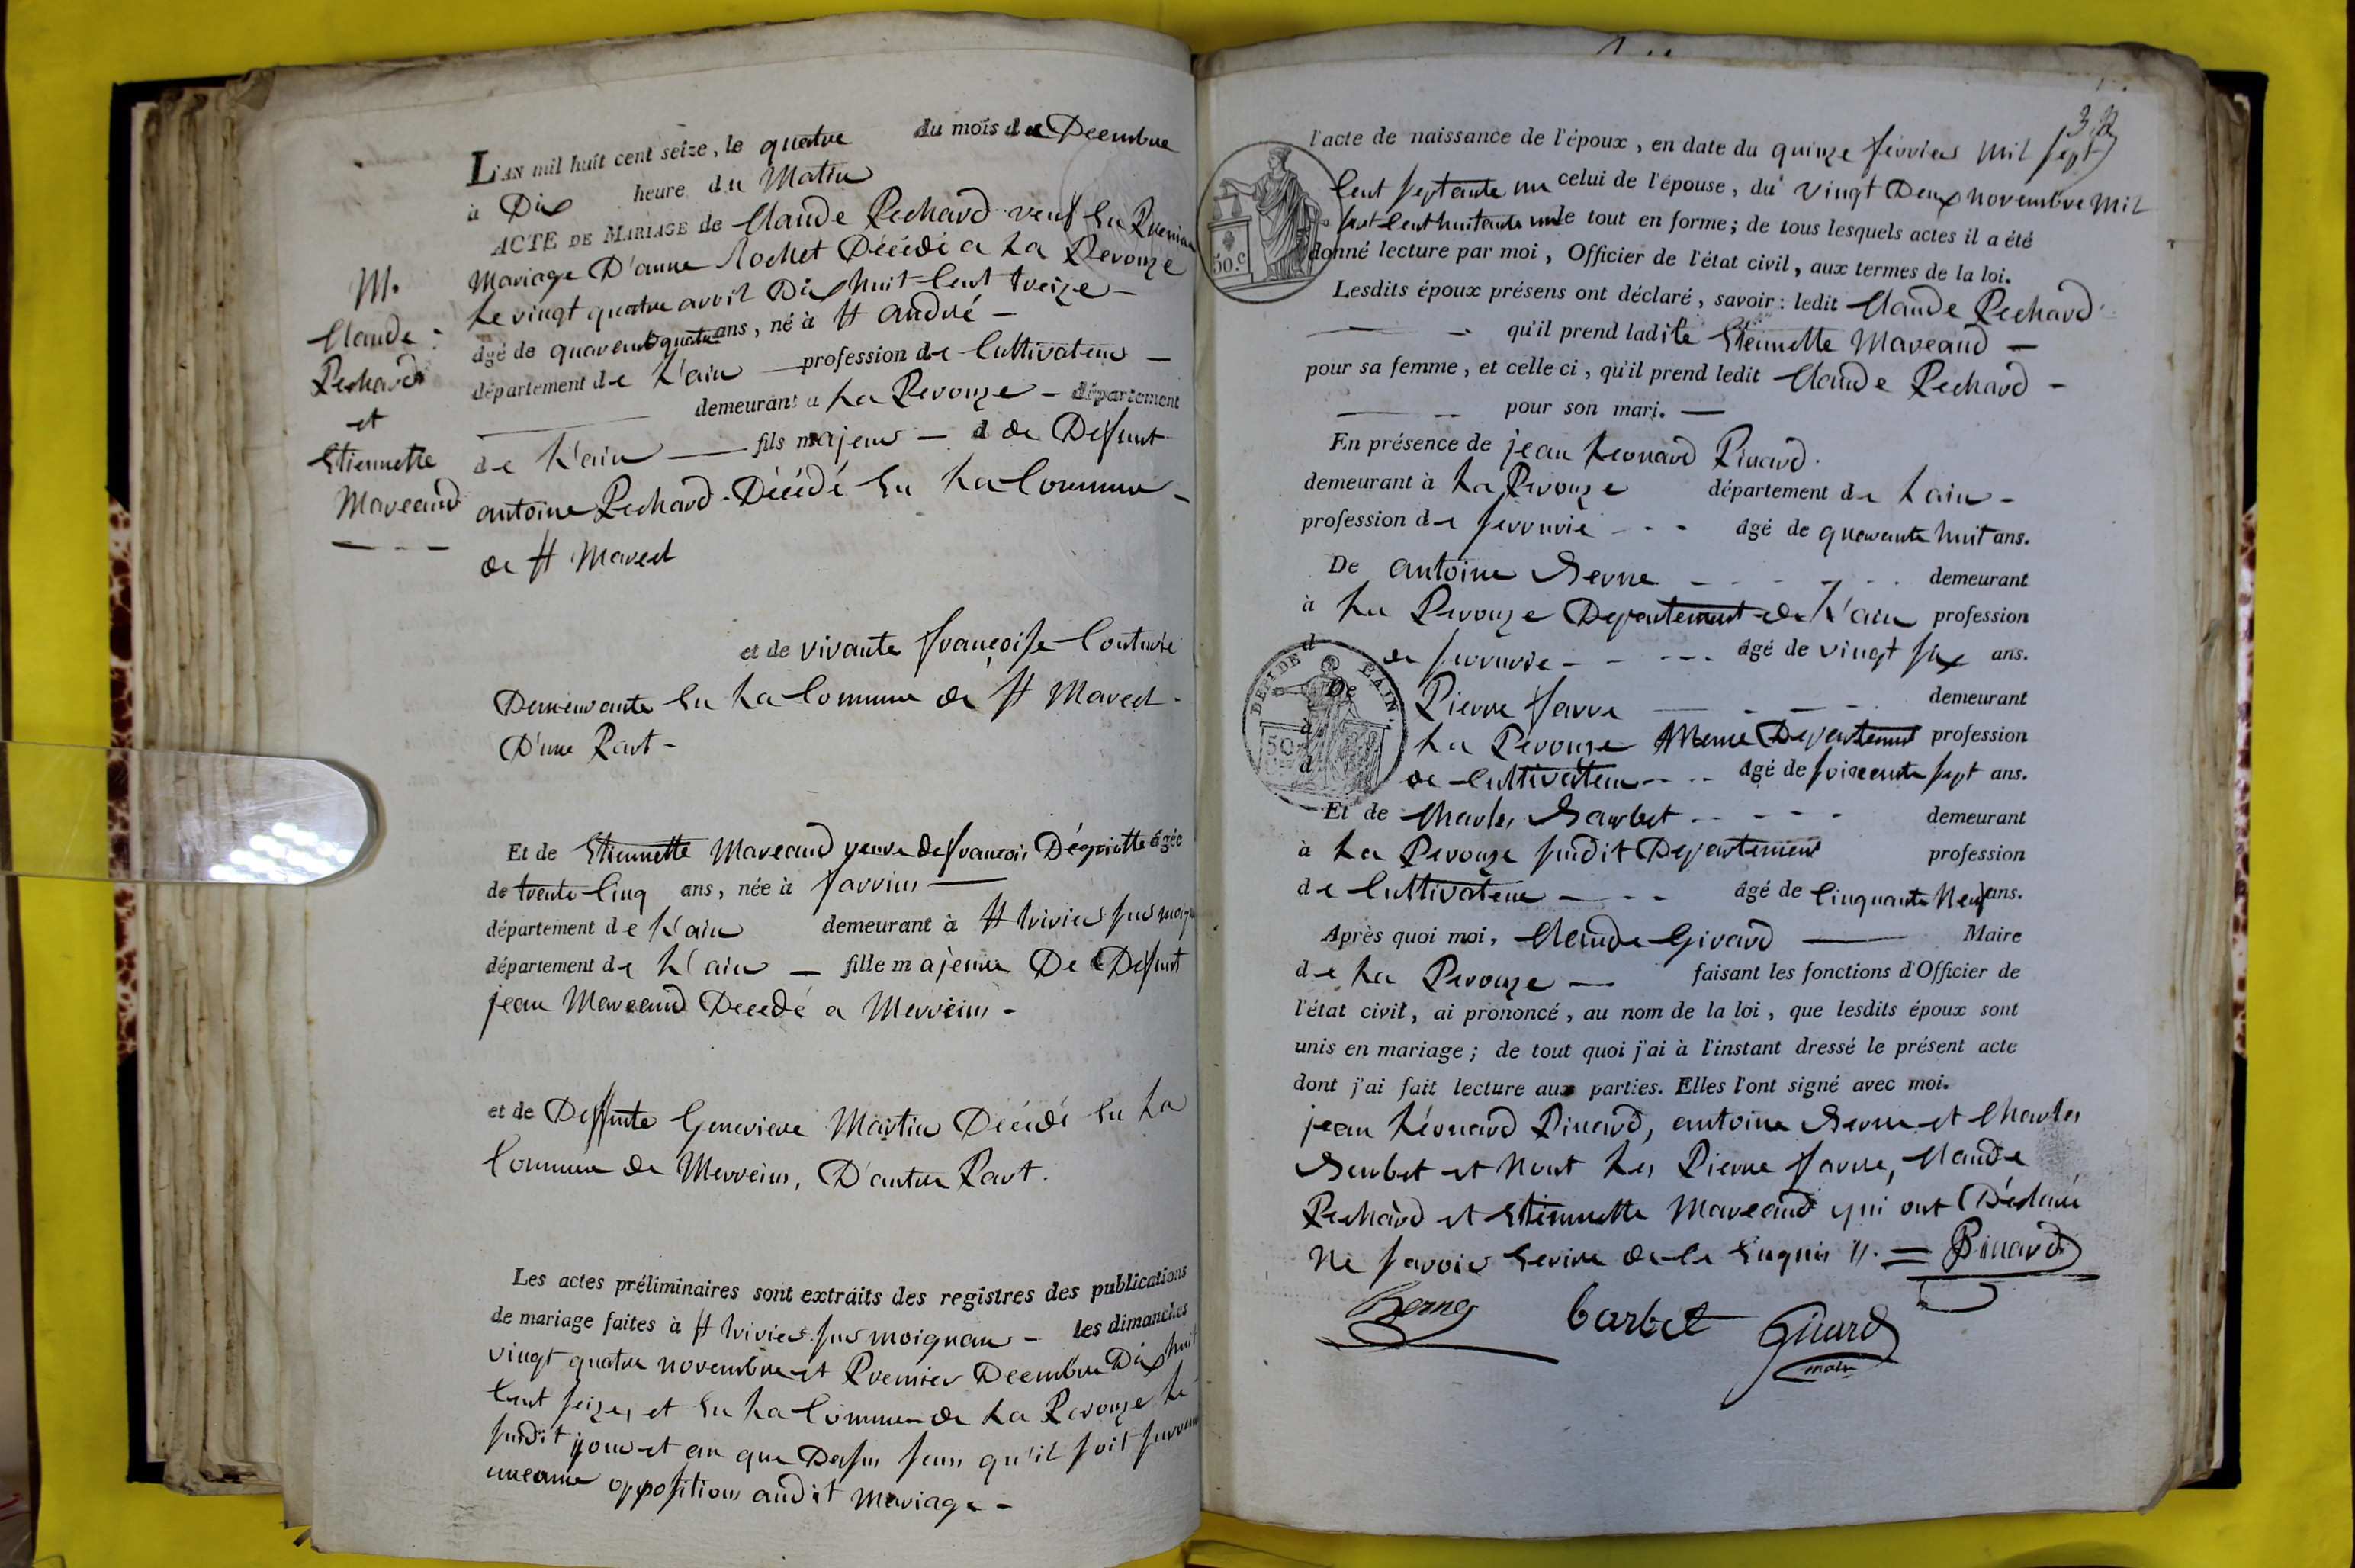 M.
Claude
Pechard
et
Etiennette
Mareaud
L'AN mil huit cent seize, le quatre du mois de Decembre
à Dix heure du Matin
ACTE DE MARIAGE de Claude Pechard veuf En Premier
Mariage D'anne Rochet Décédé a La Perouze
Le vingt quatre avril Dix huit Cent treize —
âgé de quarente quatre ans, né à St andré —
département de L'ain — profession de Cultivateur —
demeurant a La Perouze — département
de L'ain — fils majeur — de Deffunt
antoine Pechard Décédé En La Commune -
de St Marcel
et de vivante françoise Couturié
Demeurante En La Commune de St Marcel -
D'une Part -
Et de Etiennette Mareaud veuve de françois âgée
de trente Cinq ans, née à —
département de L'ain demeurant à St trivier sur moignan
département de L'ain — fille majeure De Deffunt
jean Mareaud Decedé a -
et de Deffunte Genevieve Martin Décédé En La
Commune de , D'autre Part.
Les actes préliminaires sont extraits des registres des publications
de mariage faites à St trivier sur moignan - les dimanches
vingt quatre novembre et Premier Decembre Dix huit
Cent seize, et En La Commune de La Perouze Le
susdit jour et an que Dessus sans qu'il soit
aucune opposition audit mariage -
l'acte de naissance de l'époux, en date du quinze février Mil sept
Cent septante un celui de l'épouse, du vingt Deux novembre Mil
sept Cent huitante un le tout en forme; de tous lesquels actes il a été
donné lecture par moi, Officier de l'état civil, aux termes de la loi.
Lesdits époux présens ont déclaré, savoir: ledit Claude Pechard
— - qu'il prend ladite Etiennette Mareaud —
pour sa femme, et celle ci, qu'il prend ledit Claude Pechard -
— -- pour son mari. —
En présence de jean Leonard Pinard.
demeurant à La Perouze département de Lain -
profession de serrurié - - - âgé de quarante huit ans.
De antoine Berne - - - demeurant
à La Perouze Departement de L'ain profession
d de serrurié - - --- âgé de vingt six ans.
De Pierre favre — - — -. demeurant
à La Perouze Meme Departement profession
d de Cultivateur - - .. âgé de soixcente sept ans.
DEP. DE L'AIN.
50 c
Et de Charles Barbet - - - - - demeurant
à La Perouze susdit Departement profession
de Cultivateur — - - âgé de Cinquante Neuf ans.
Après quoi moi, Claude Girard — Maire
de La Perouze — faisant les fonctions d'Officier de
l'état civil, ai prononcé, au nom de la loi, que lesdits époux sont
unis en mariage; de tout quoi j'ai à l'instant dressé le présent acte
dont j'ai fait lecture aux parties. Elles l'ont signé avec moi.
jean Léonard Pinard, antoine Berne et Charles
Barbet et Nont Les Pierre favre, Claude
Pechard et Etiennette Mareaud qui ont Déclaré
Ne savoir Ecrire de ce Enquis //. = Pinard
Berne barbet Girard
maire